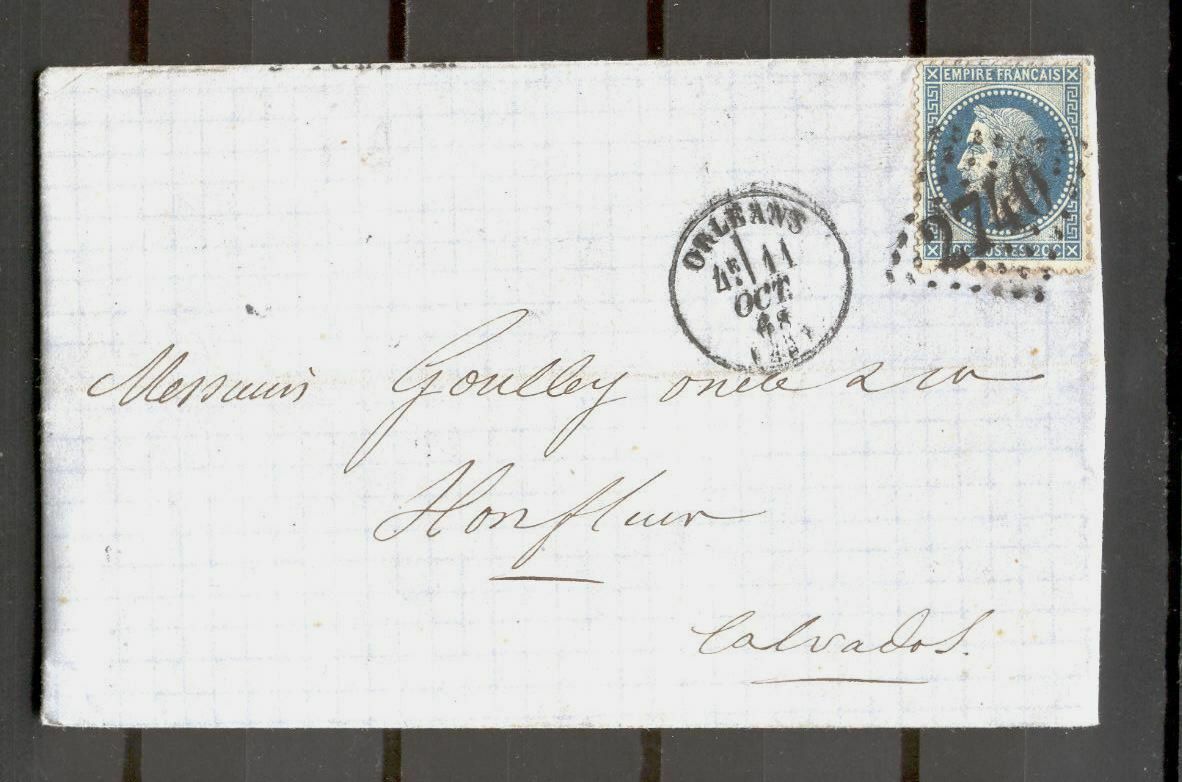 EMPIRE FRANÇAIS
2740
POSTES 20C
ORLÉANS
4E 11
OCT.
68
(43)
Messieurs Goulley oncle & Cie
Honfleur
Calvados.